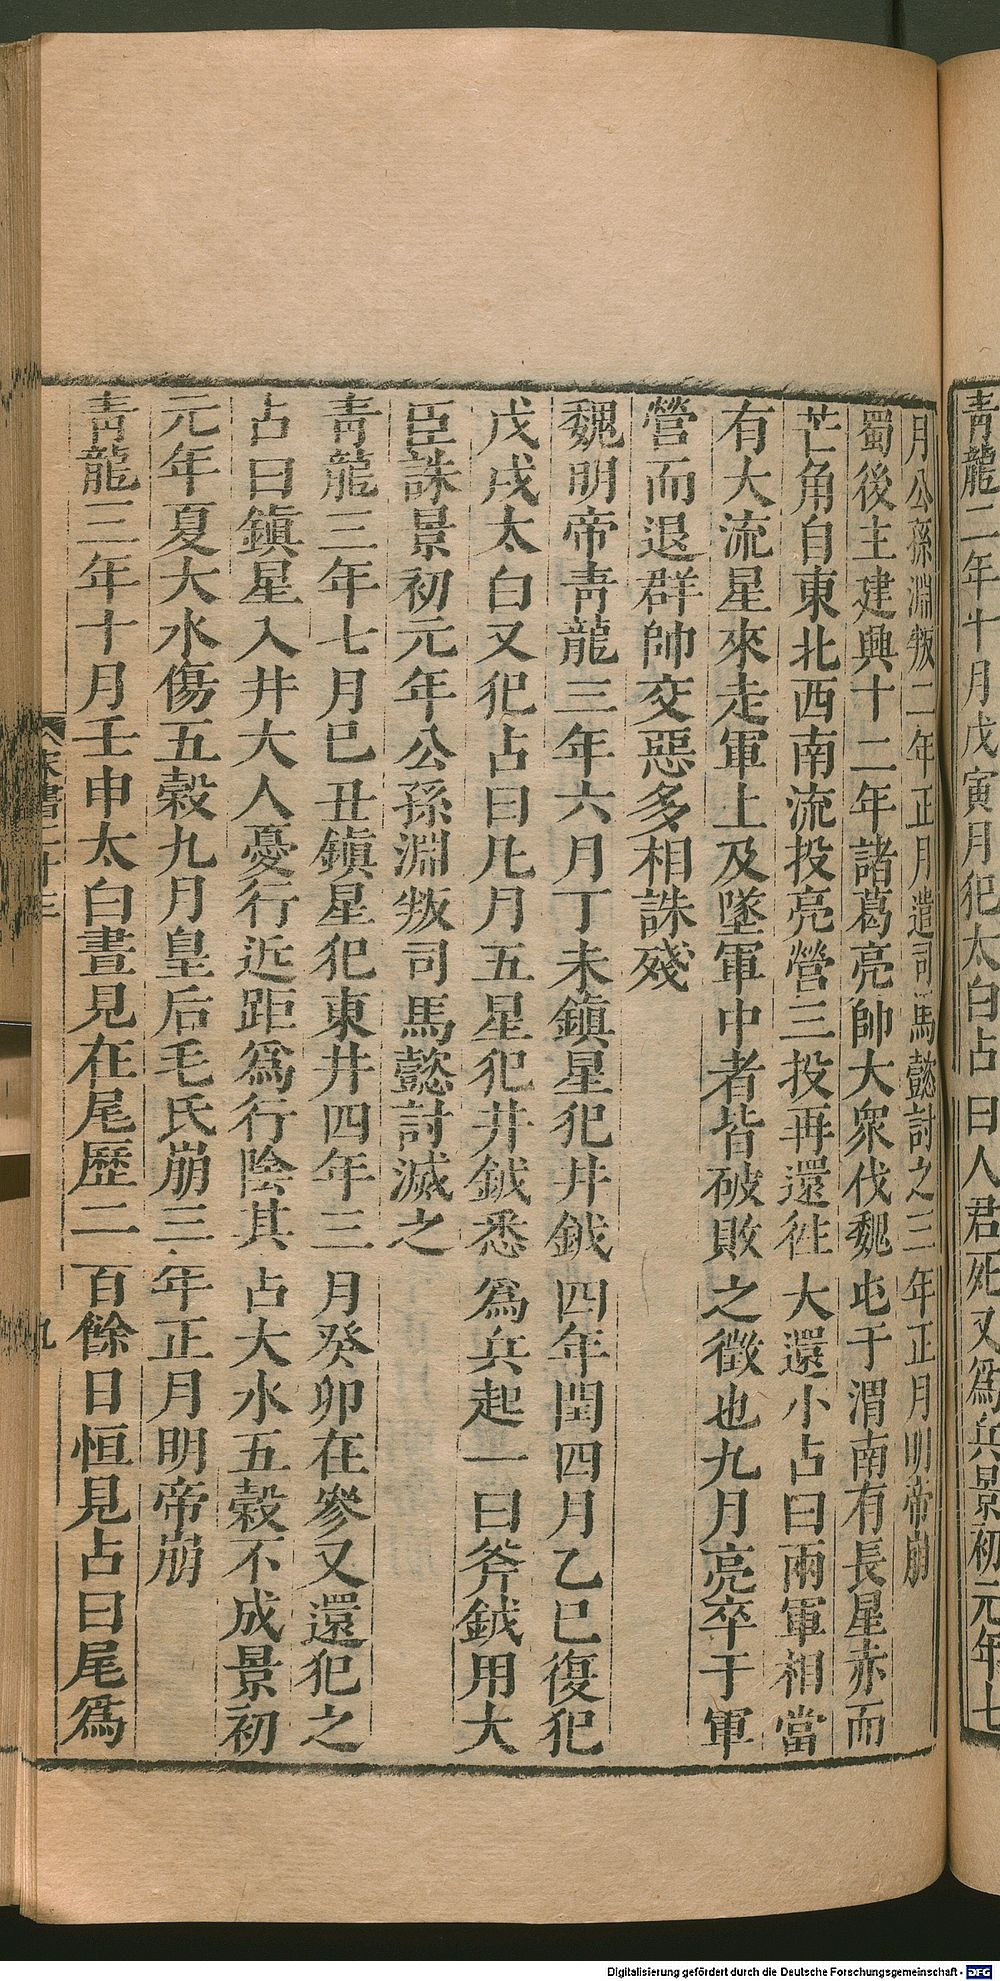 青龍二年十月戊寅月犯太白占曰人君死又為兵景初元年七
月公孫淵叛二年正月遣司馬懿討之三年正月明帝崩
蜀後主建興十二年諸葛亮帥大眾伐魏屯于渭南有長星赤而
芒角自東北西南流投亮營三投再還徃大還小占曰兩軍相當
有大流星來走軍上及墜軍中者皆破敗之徵也九月亮卒于軍
營而退群帥交惡多相誅殘
魏明帝靑龍三年六月丁未鎭星犯井鉞四年閏四月乙巳復犯
戊戌太白又犯占曰凡月五星犯井鉞悉為兵起一曰斧鉞用大
臣誅景初元年公孫淵叛司馬懿討滅之
靑龍三年七月巳丑鎭星犯東井四年三月癸卯在參又還犯之
占曰鎭星入井大人憂行近距為行陰其占大水五穀不成景初
元年夏大水傷五穀九月皇后毛氏崩三年正月明帝崩
靑龍三年十月壬申太白晝見在尾歷二百餘日恒見占曰尾為
宋書二十三
九
Digitalisierung gefördert durch die Deutsche Forschungsgemeinschaft - DFG